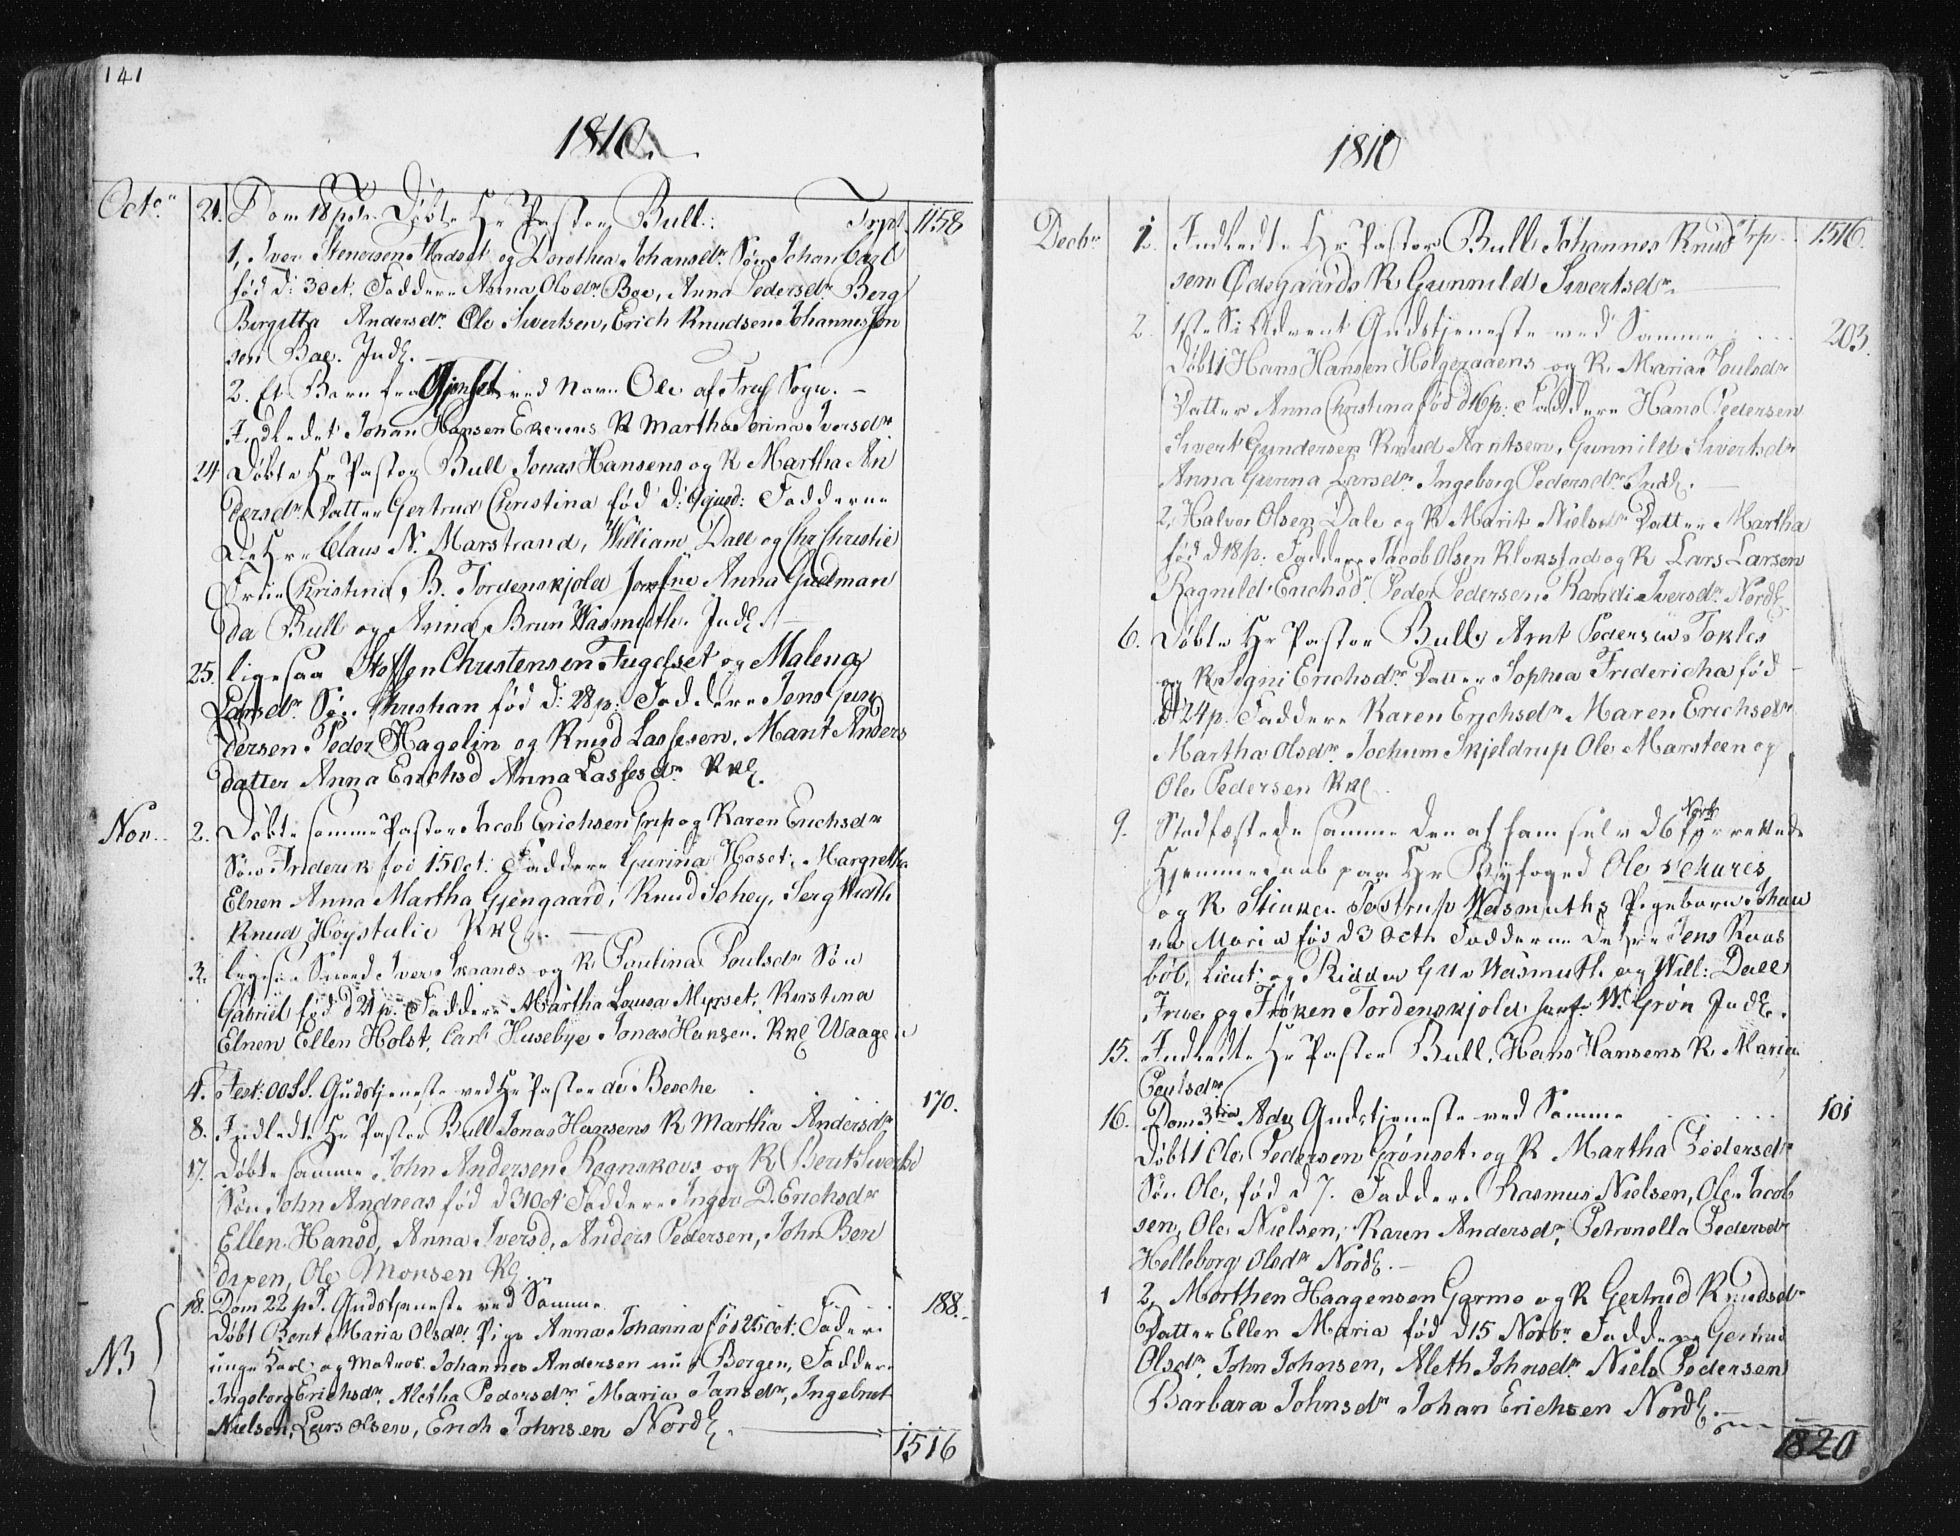 141
1810.
Octr. 21. Dom 18 p Tr. Døbte Hr Pastor Bull. Trpt. 1158
1, Iver Stenersen Madset og Dorothea Johansdr. Søn Johan Carl
fød d: 3 Oct. Faddere Anna Olsdr Boe, Anna Pedersdr. Berg
Birgitta Andersdr. Ole Sivertsen, Erich Knudsen Johannes
sen Boe. Indl.
2. Et Barn fra Gjenset ved Navn Ole af Sogn.
Indledet Johan Hansen Ekerens K Martha Serina Iversdr
24. Døbte Hr Pastor Bull Jonas Hansens og K Martha An
dersdr. Datter Gertrud Christina fød d: Fadderne
De Hrr Claus N. Marstrand, William Dall og Chr Christie
Frue Christina B. Tordenskjold Jomfrue Anna Gudman
da Bull og Anna Brun Wasmuth. Indl.
25. ligesaa Stoffen Christensen Fugelset og Malena
Larsdr. Søn Christian fød d: 28 p. Faddere Jens Gun
dersen Peder Hagelin og Knud Lassesen, Marit Anders
datter Anna Erichsd Anna Lassesdr. Kkl.
Nov. 2. Døbte samme Pastor Jacob Erichsen Grip og Karen Erichsdr
Søn Friderik fød 15 Oct. Faddere Gurina Hoset, Margrethe
Elnen Anna Martha Gjengaard, Knud Schey, Serg Width
Knud Høystulie Kkl.
3. ligesaa Iver Skaanes og K Paulina Poulsdr Søn
Gabriel fød d 21 p. Faddere Martha Lovisa Myrset, Kirstina
Elnen Ellen Holst, Carl Husebye Jonas Hansen. Kkl Waagen
4. Fest: OO SS. Gudstjeneste ved Hr Pastor de Besche 170.
8. Indledte Hr Pastor Bull Jonas Hansens K Martha Andersdr
17. Døbte samme John Andersen Rognskovs og K Berit Sivertsd
Søn John Andreas fød d 31 Oct Faddere Inger D. Erichsdr
Ellen Hansd, Anna Iversd, Anders Pedersen, John Ben
dixen, Ole Monsen Kl.
18. Dom 22 p T. Gudstjeneste ved Samme 188.
NB Døbt Berit Maria Olsdr. Pige Anna Johanna fød 25 Oct: Fader
unge Karl og Matros Johannes Andersen nu i Bergen, Faddere
Ingeborg Erichsdr, Aletha Pedersdr Maria Jansdr, Ingebret
Nielsen, Lars Olsen, Erich Johnsen Nordl.
1516
1810
Decbr. 1. Indledte Hr Pastor Bull Johannes Knud Trp. 1516.
sen Ødegaards K Gunnild Sivertsdr.
2. 1ste S i Advent Gudstjeneste ved Samme 203.
Døbt 1 Hans Hansen Holgeraaens og K. Maria Poulsdr
Datter Anna Christina fød d 16 p: Faddere Hans Pedersen
Sivert Gundersen Knud Arntsen, Gunnild Sivertsdr
Anna Gurina Larsdr. Ingeborg Pedersdr Indl.
2, Halvor Olsen Dale og K Marit Nielsdr Datter Martha
fød d 18 p: Faddere Jacob Olsen Klokstad og K Lars Larsen
Ragnild Erichsdr Peder Pedersen Randi Iversdr. Nordl.
6. Døbte Hr Pastor Bull, Arnt Pedersen Tokles
og K Signi Erichsdr Datter Sophia Fridericha fød
d 24 p. Faddere Karen Erichsdr Maren Erichsdr
Martha Olsdr. Jochum Skjeldrup Ole Marsteen og
Ole Pedersen Kkl.
9. Stadfæstede samme den af ham selv d 6 Novbr forrettede
Hjemmedaab paa Hr Byfoged Ole
og K Stinken Wasmuths Pigebarn Johan
na Maria fød d 3 Octr Fadderne De Hrr Jens Kaas
bøl, Lieut: og Ridder G Wasmuth og Will: Dall
Frue og Frøken Tordenskjold Jomfr W. Grøn Indl.
15. Indledte Hr Pastor Bull, Hans Hansens K Maria
Poulsdr.
16. Dom 3tia Adv Gudstjeneste ved Samme 101
Døbt 1 Ole Pedersen Grønset og K Martha Pedersdr
Søn Ole, fød d 7. Faddere Rasmus Nielsen, Ole Jacob
sen, Ole Nielsen, Karen Andersdr, Petronella Pedersdr
Helleborg Olsdr Nordl.
1 2, Morthen Haagensen Garmo og K Gertrud Knudsdr
Datter Ellen Maria fød d 15 Novbr Faddere Gertrud
Olsdr. John Johnsen, Aleth Johnsdr. Niels Pedersen
Barbara Johnsdr Johan Erichsen Nordl.
1820